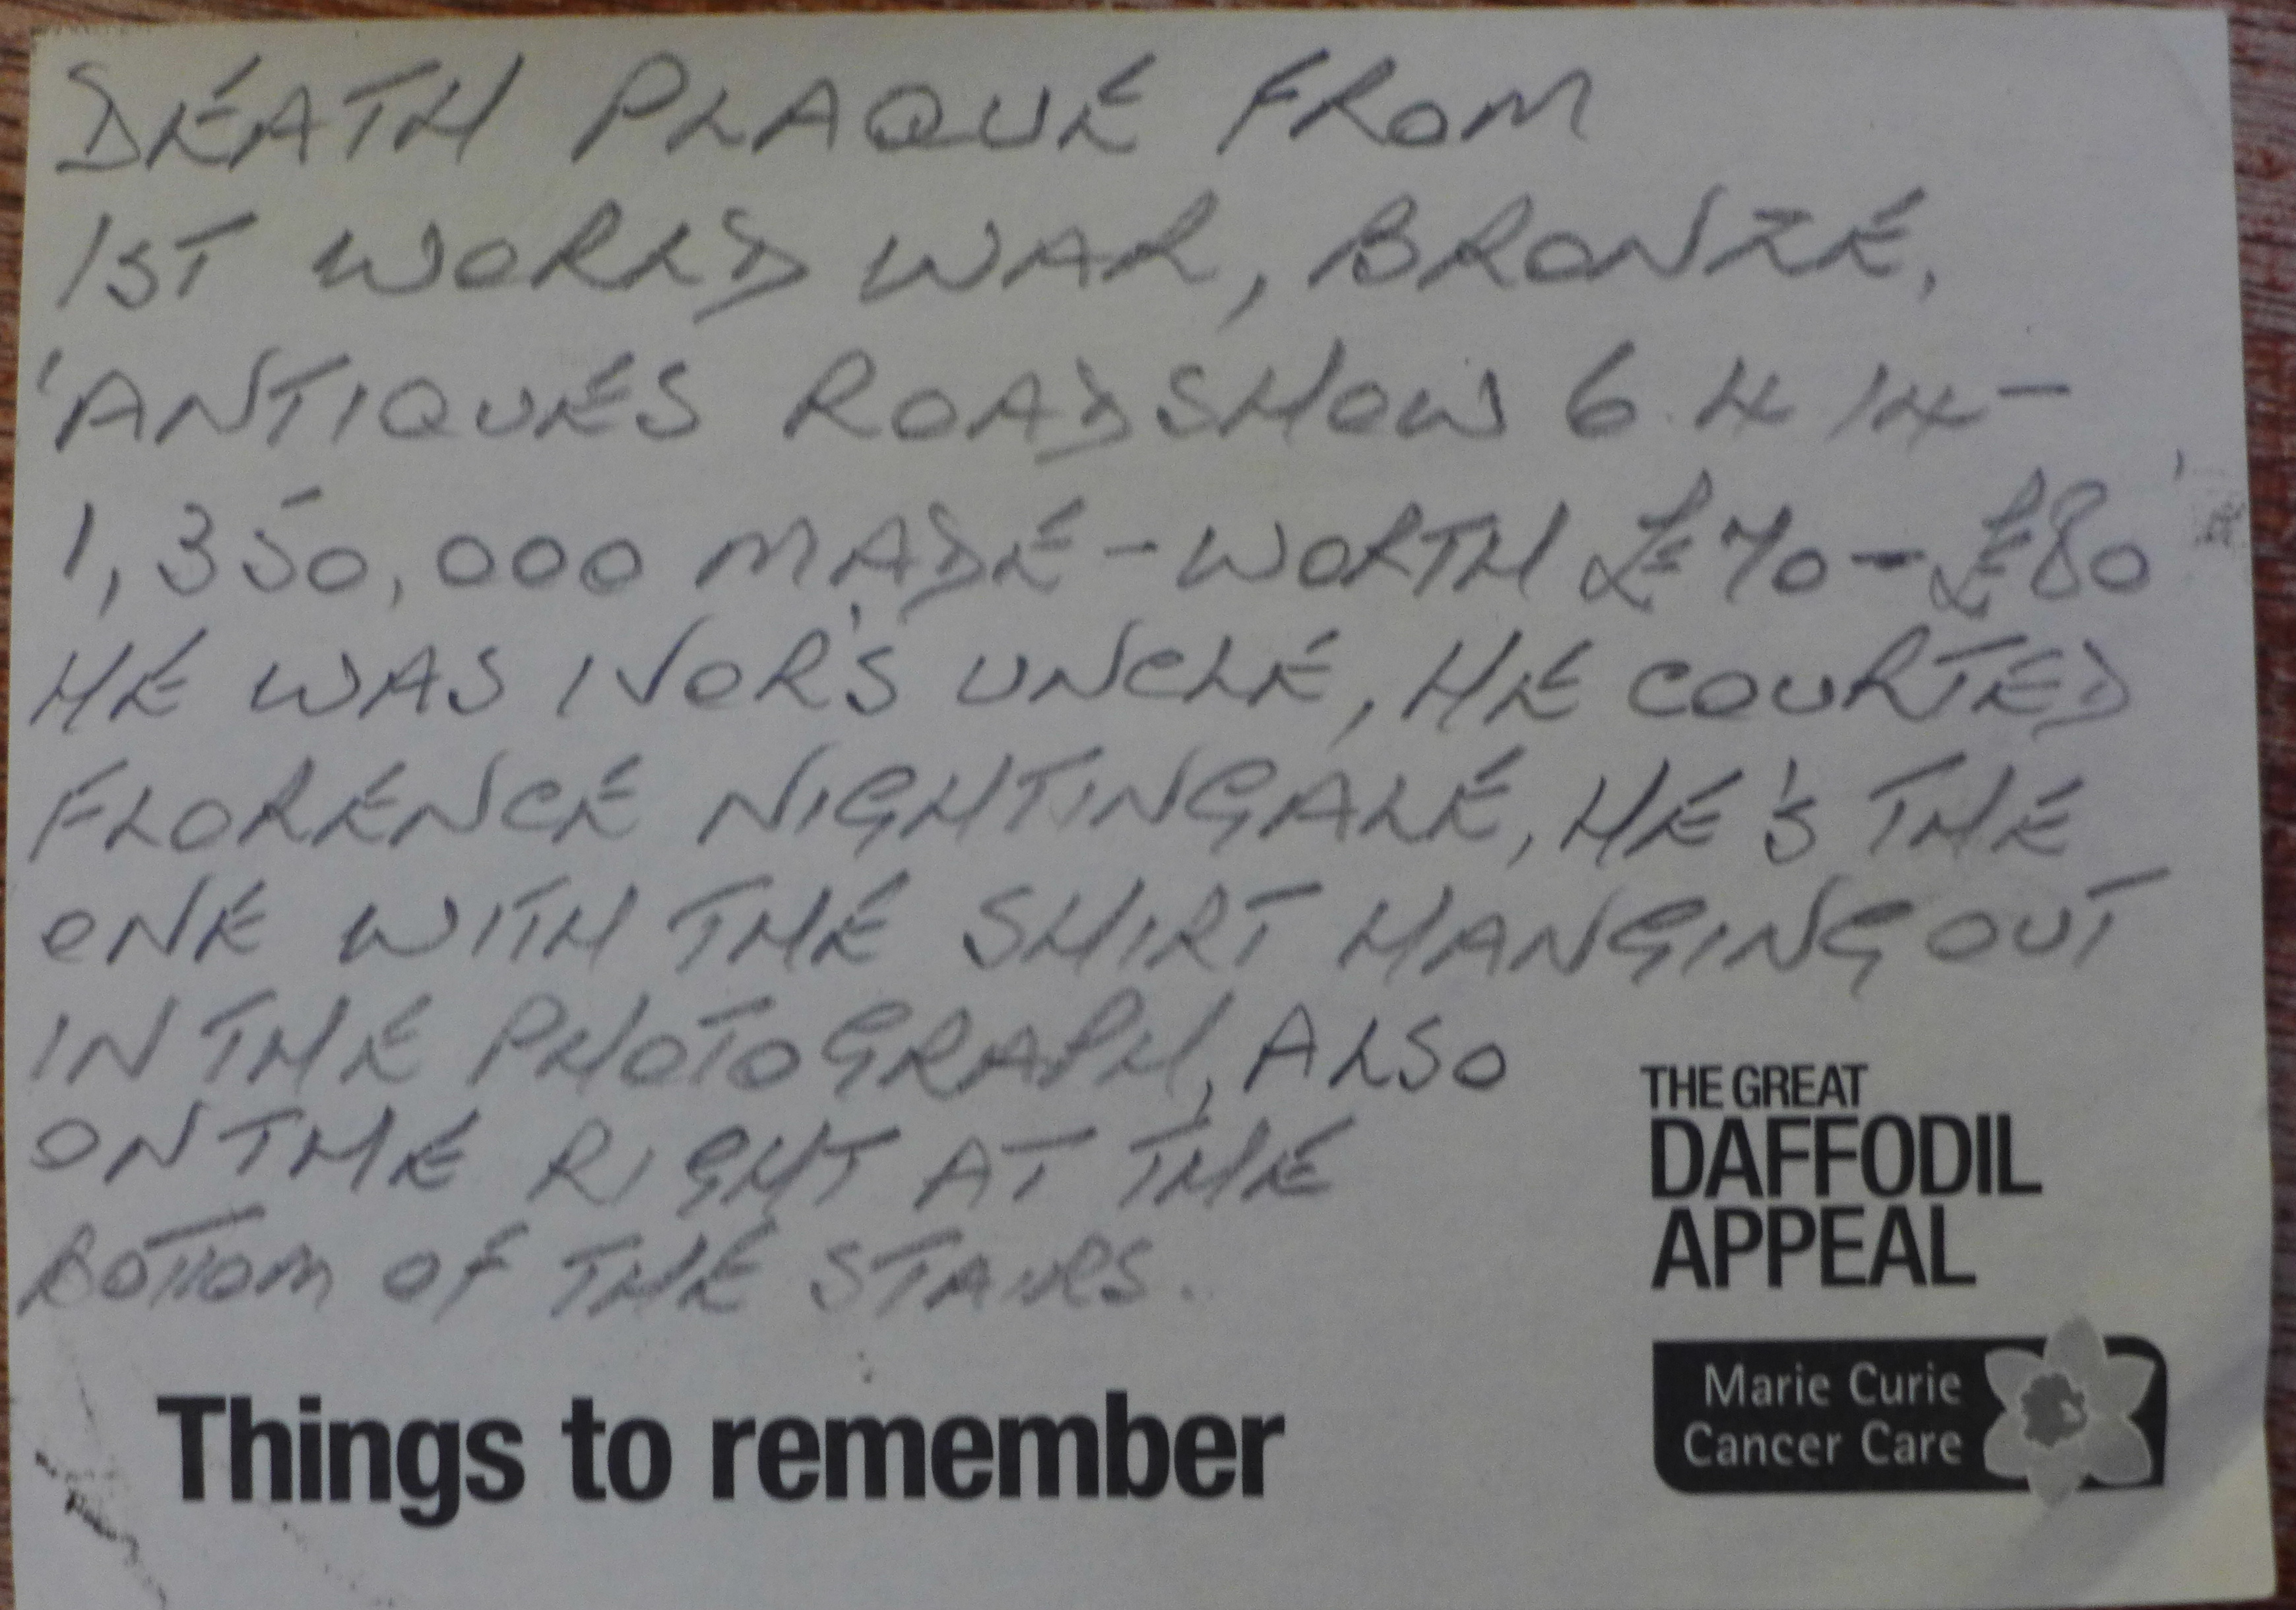 DEATH PLAQUE FROM
1ST WORLD WAR, BRONZE,
'ANTIQUES ROADSHOW 6.4 14 -
1,350,000 MADE - WORTH £70 - £80'
HE WAS IVOR'S UNCLE, HE COURTED
FLORENCE NIGHTINGALE, HE'S THE
ONE WITH THE SHIRT HANGING OUT
IN THE PHOTOGRAPH, ALSO
ON THE RIGHT AT THE
BOTTOM OF THE STAIRS.
THE GREAT
DAFFODIL
APPEAL
Marie Curie
Cancer Care
Things to remember